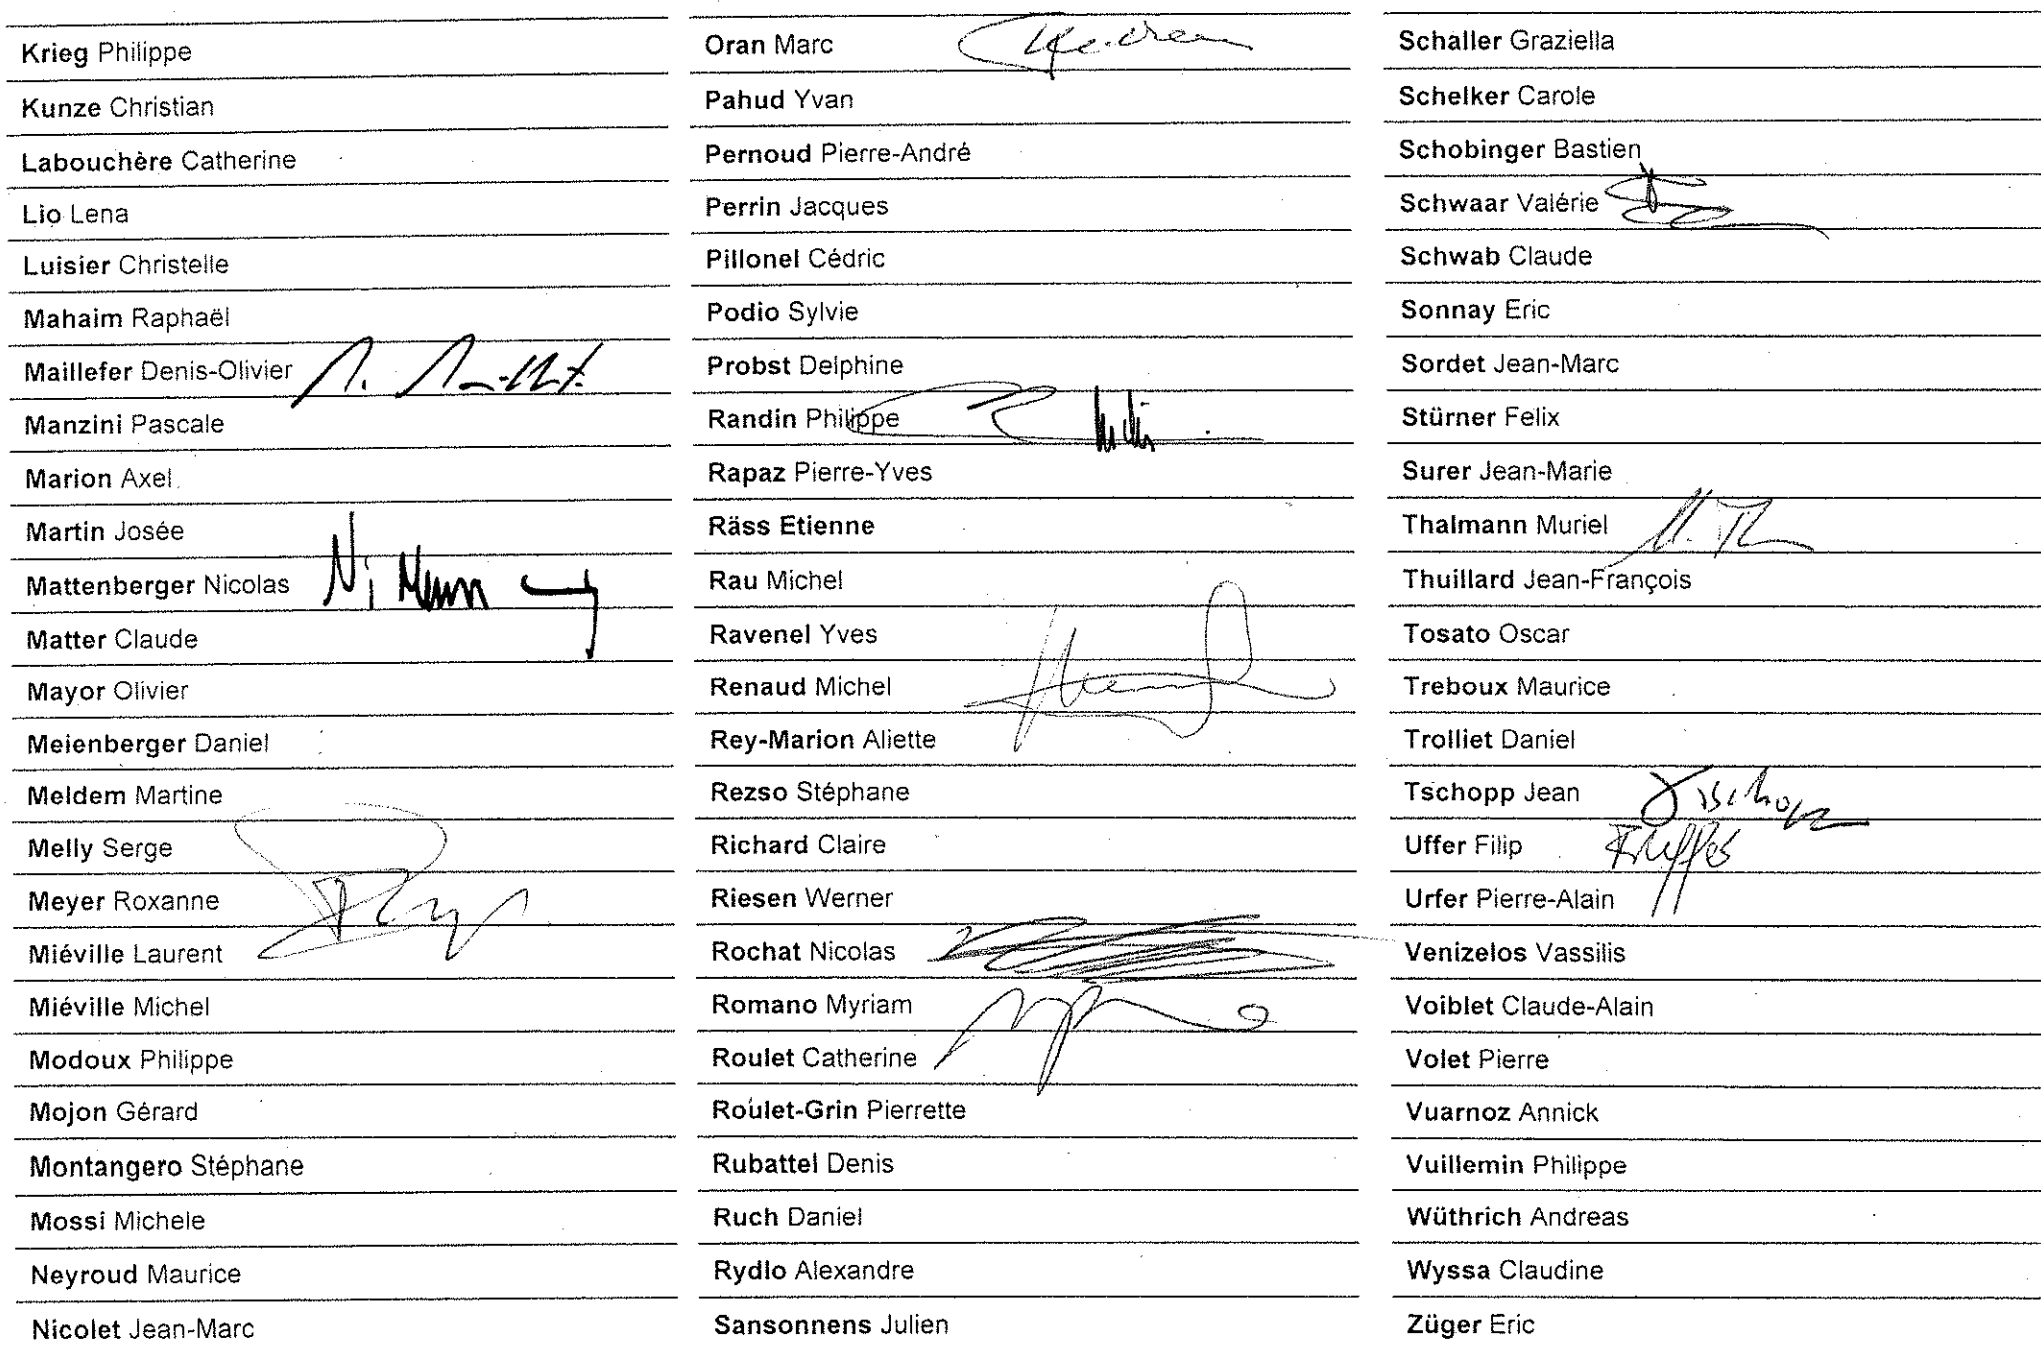 Krieg Philippe
Kunze Christian
Labouchère Catherine
Lio Lena
Luisier Christelle
Mahaim Raphaël
Maillefer Denis-Olivier
Manzini Pascale
Marion Axel
Martin Josée
Mattenberger Nicolas
Matter Claude
Mayor Olivier
Meienberger Daniel
Meldem Martine
Melly Serge
Meyer Roxanne
Miéville Laurent
Miéville Michel
Modoux Philippe
Mojon Gérard
Montangero Stéphane
Mossi Michele
Neyroud Maurice
Nicolet Jean-Marc
Oran Marc
Pahud Yvan
Pernoud Pierre-André
Perrin Jacques
Pillonel Cédric
Podio Sylvie
Probst Delphine
Randin Philippe
Rapaz Pierre-Yves
Räss Etienne
Rau Michel
Ravenel Yves
Renaud Michel
Rey-Marion Aliette
Rezso Stéphane
Richard Claire
Riesen Werner
Rochat Nicolas
Romano Myriam
Roulet Catherine
Roulet-Grin Pierrette
Rubattel Denis
Ruch Daniel
Rydlo Alexandre
Sansonnens Julien
Schaller Graziella
Schelker Carole
Schobinger Bastien
Schwaar Valérie
Schwab Claude
Sonnay Eric
Sordet Jean-Marc
Stürner Felix
Surer Jean-Marie
Thalmann Muriel
Thuillard Jean-François
Tosato Oscar
Treboux Maurice
Trolliet Daniel
Tschopp Jean Tschopp
Uffer Filip
Urfer Pierre-Alain
Venizelos Vassilis
Voiblet Claude-Alain
Volet Pierre
Vuarnoz Annick
Vuillemin Philippe
Wüthrich Andreas
Wyssa Claudine
Züger Eric